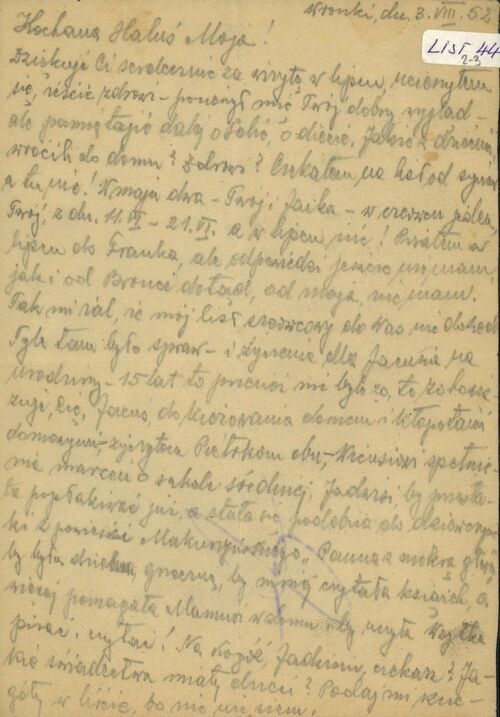 Wronki, dn. 3. VIII. 52
LIST 44
2-3
Kochana Haluś Moja!
Dziękuję Ci serdecznie za wizytę w lipcu, ucieszyłem
się, żeście zdrowi - pocieszył mnie Twój dobry wygląd -
ale pamiętajcie dalej o sobie, o diecie. Jakże z dziećmi
wrócili do domu? Zdrowi? Czekałem na list od
a tu nic! W maju dwa - Twój i Jacka - w czerwcu jeden,
Twój, z dn. 11.VI - 21.VI. a w lipcu nic! Pisałem w
lipcu do Franka, ale odpowiedzi jeszcze nie mam
jak i od Bronci dotąd, od maja, nie mam.
Tak mi żal, że mój list czerwcowy do Was nie doszedł
Tyle tam było spraw - i życzenia dla Jacusia na
urodziny - 15 lat to przecież nie byle co, to zobowią-
zuje Cię, Jacuś, do kierowania domem i kłopotami
domowymi
nie marzeń o szkole średniej. Jadzisi by przesta-
ła popłakiwać już, a stała się podobna do dziewczyn-
ki z powieści Makuszyńskiego „Panna z mokrą głową
by była dzielna, grzeczna, by mniej czytała książek, a
więcej pomagała Mamusi w domu i by uczyła Wojtka
pisać i czytać! No Jadziuniu, ciekaw? Ja-
kie świadectwa miały dzieci? Podaj mi szcze-
góły w liście, bo nic nie wiem.